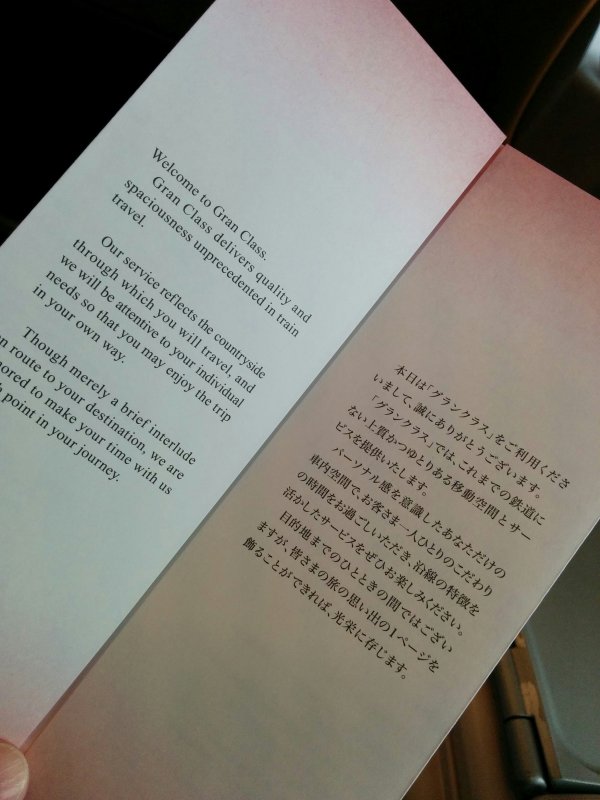 Welcome to Gran Class.
Gran Class delivers quality and
spaciousness unprecedented in train
travel.
Our service reflects the countryside
through which you will travel, and
we will be attentive to your individual
needs so that you may enjoy the trip
in your own way.
Though merely a brief interlude
route to your destination, we are
to make your time with us
point in your journey.
本日は「グランクラス」をご利用くださ
いまして、誠にありがとうございます。
「グランクラス」では、これまでの鉄道に
ない上質かつゆとりある移動空間とサー
ビスを提供いたします。
パーソナル感を意識したあなただけの
車内空間で、お客さま一人ひとりのこだわり
の時間をお過ごしいただき、沿線の特徴を
活かしたサービスをぜひお楽しみください。
目的地までのひとときの間ではござい
ますが、皆さまの旅の思い出の1ページを
飾ることができれば、光栄に存じます。